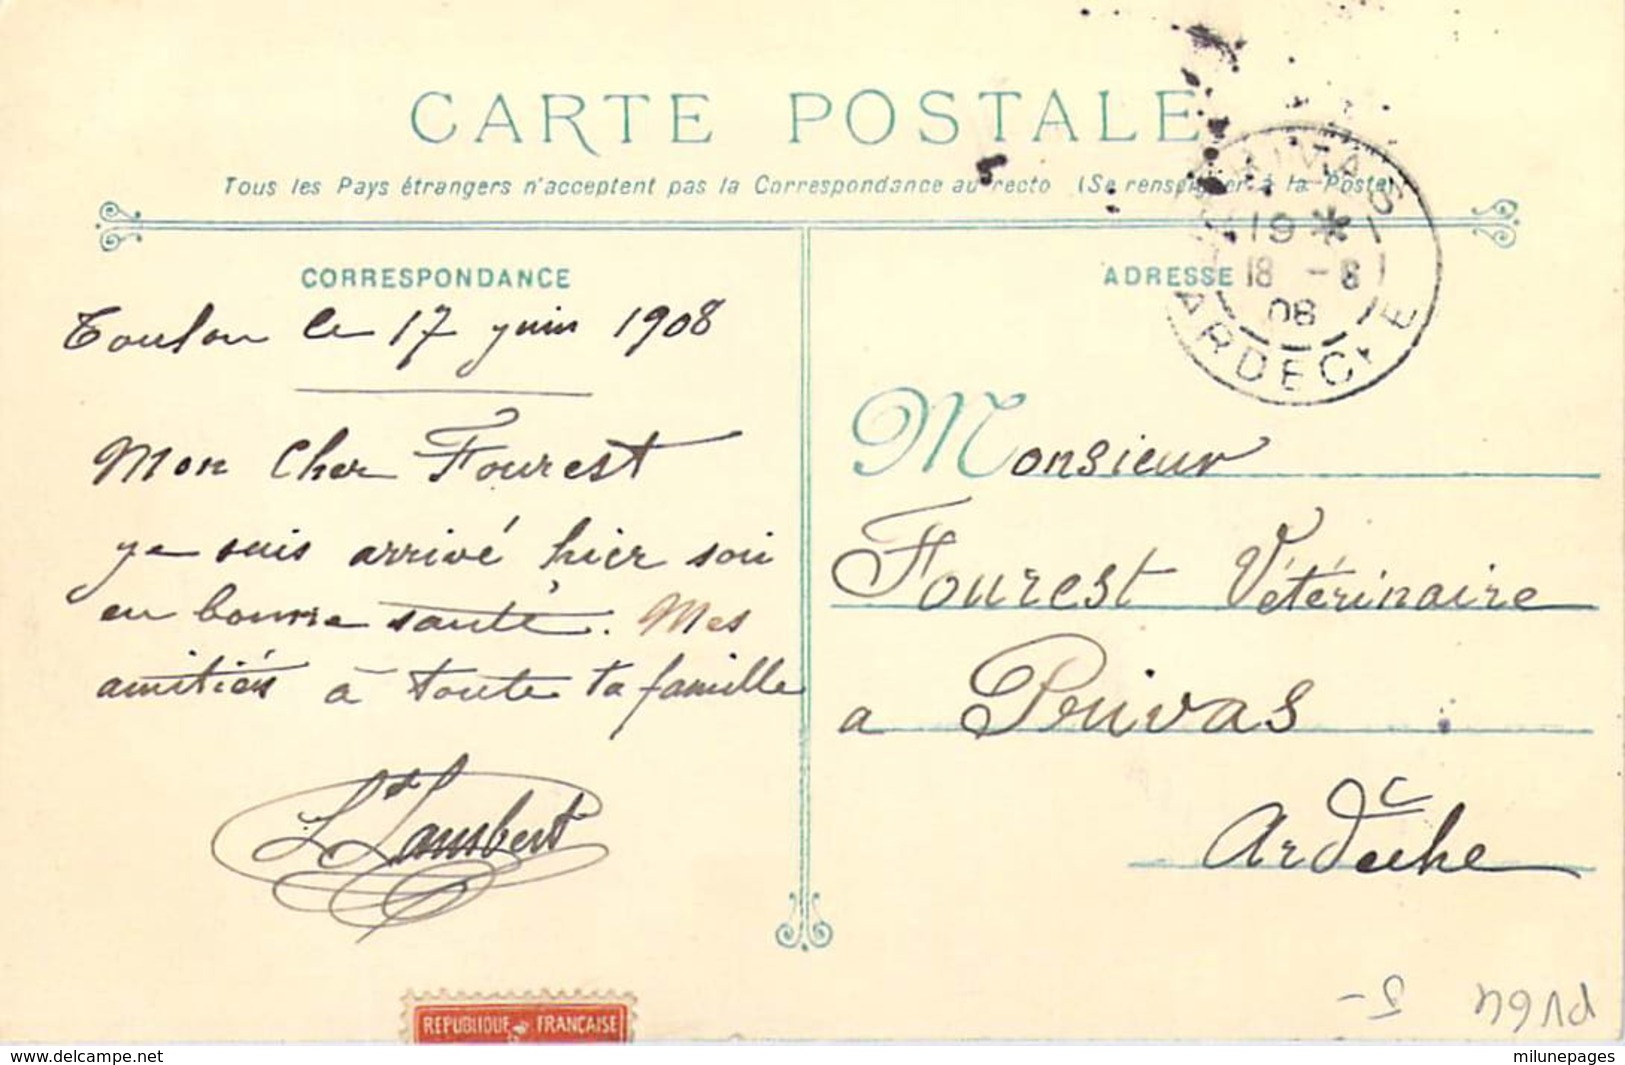 CARTE POSTALE
Tous les Pays étrangers n'acceptent pas la Correspondance au recto (Se renseigner à la Poste)
CORRESPONDANCE
Toulon le 17 juin 1908
Mon Cher Fourest
je suis arrivé hier soir
en bonne santé. Mes
amitiés à toute ta famille
L Lambert
REPUBLIQUE FRANÇAISE
ADRESSE
PRIVAS
19 *
18 - 8
08
ARDECHE
Monsieur
Fourest Vétérinaire
a Privas
Ardèche
5-
PV64
www.delcampe.net
milunepages